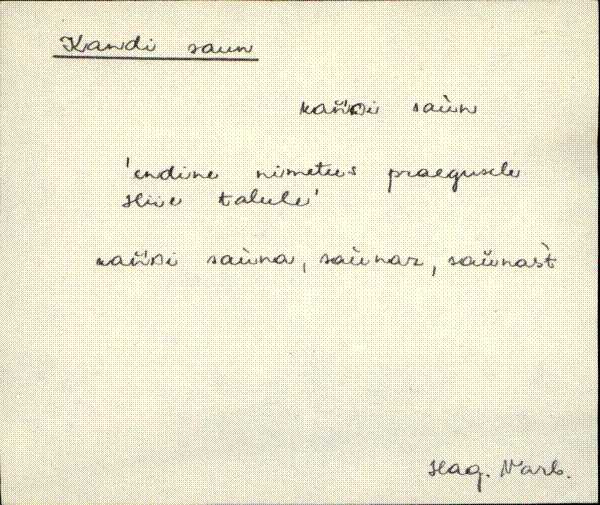 Kandi saun
kan̆ᴅi saùn
'endine nimetus praegusele
Hiie talule'
kan̆ᴅi saùna, saùnaz, saŭnast̀
Hag. Varb.